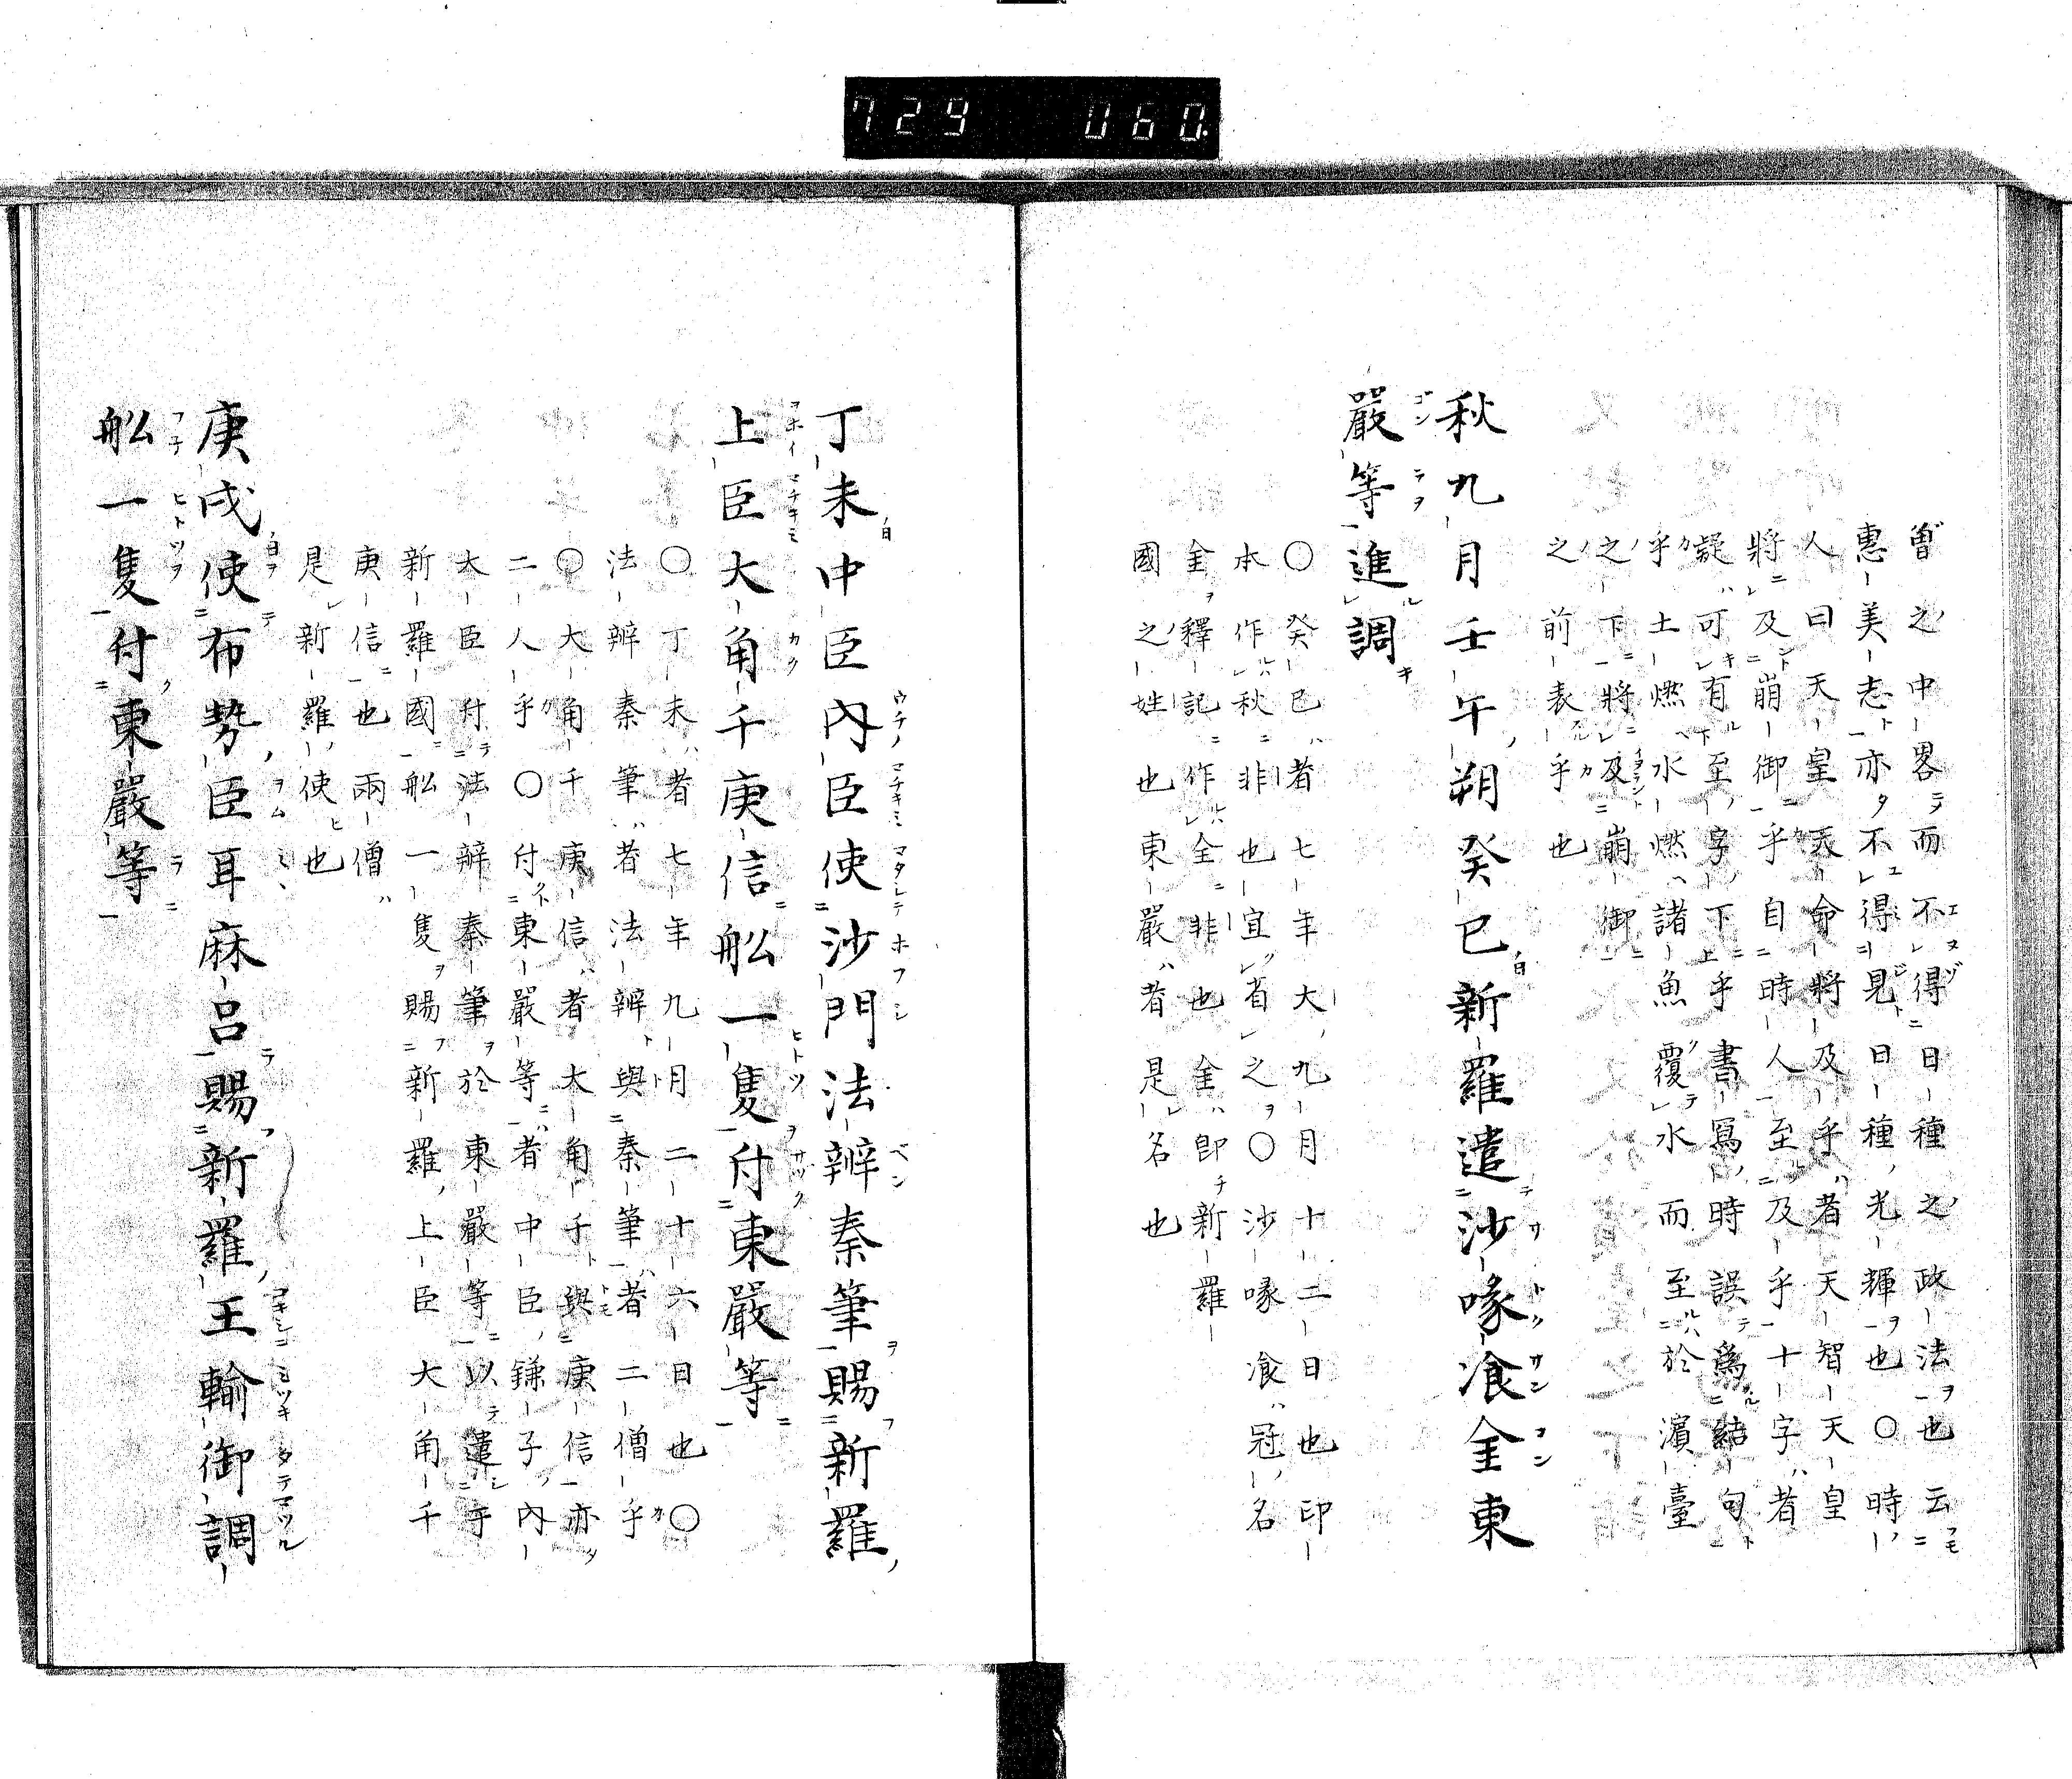 729 060.
曾之中畧而不得日種之政法也云
惠美志亦不得見日種光輝也〇時
人曰天皇天命將及乎者天智天皇
將及崩御乎自時人至及乎十字者
疑可有至字下乎書寫時誤爲結句
乎土燃水燃諸魚覆水而至於濱臺
之下將及崩御
之前表乎也
秋九月壬午朔癸巳新羅遣沙喙飡金東
嚴等進調
〇癸巳者七年大九月十二日也印
本作秋非也宜省之〇沙喙飡冠名
金釋記作全非也金即新羅
國之姓也東嚴者是名也
丁未中臣內臣使沙門法辨秦筆賜新羅
上臣大角千庚信舩一隻付東嚴等
〇丁未者七年九月二十六日也〇
法辨秦筆者法辨與秦筆者二僧乎
〇大角千庚信者大角千與庚信亦
二人乎〇付東嚴等者中臣鎌子內
大臣付法辨秦筆於東嚴等以遣于
新羅國舩一隻賜新羅上臣大角千
庚信也兩僧
是新羅使也
庚戌使布勢臣耳麻呂賜新羅王輸御調
舩一隻付東嚴等